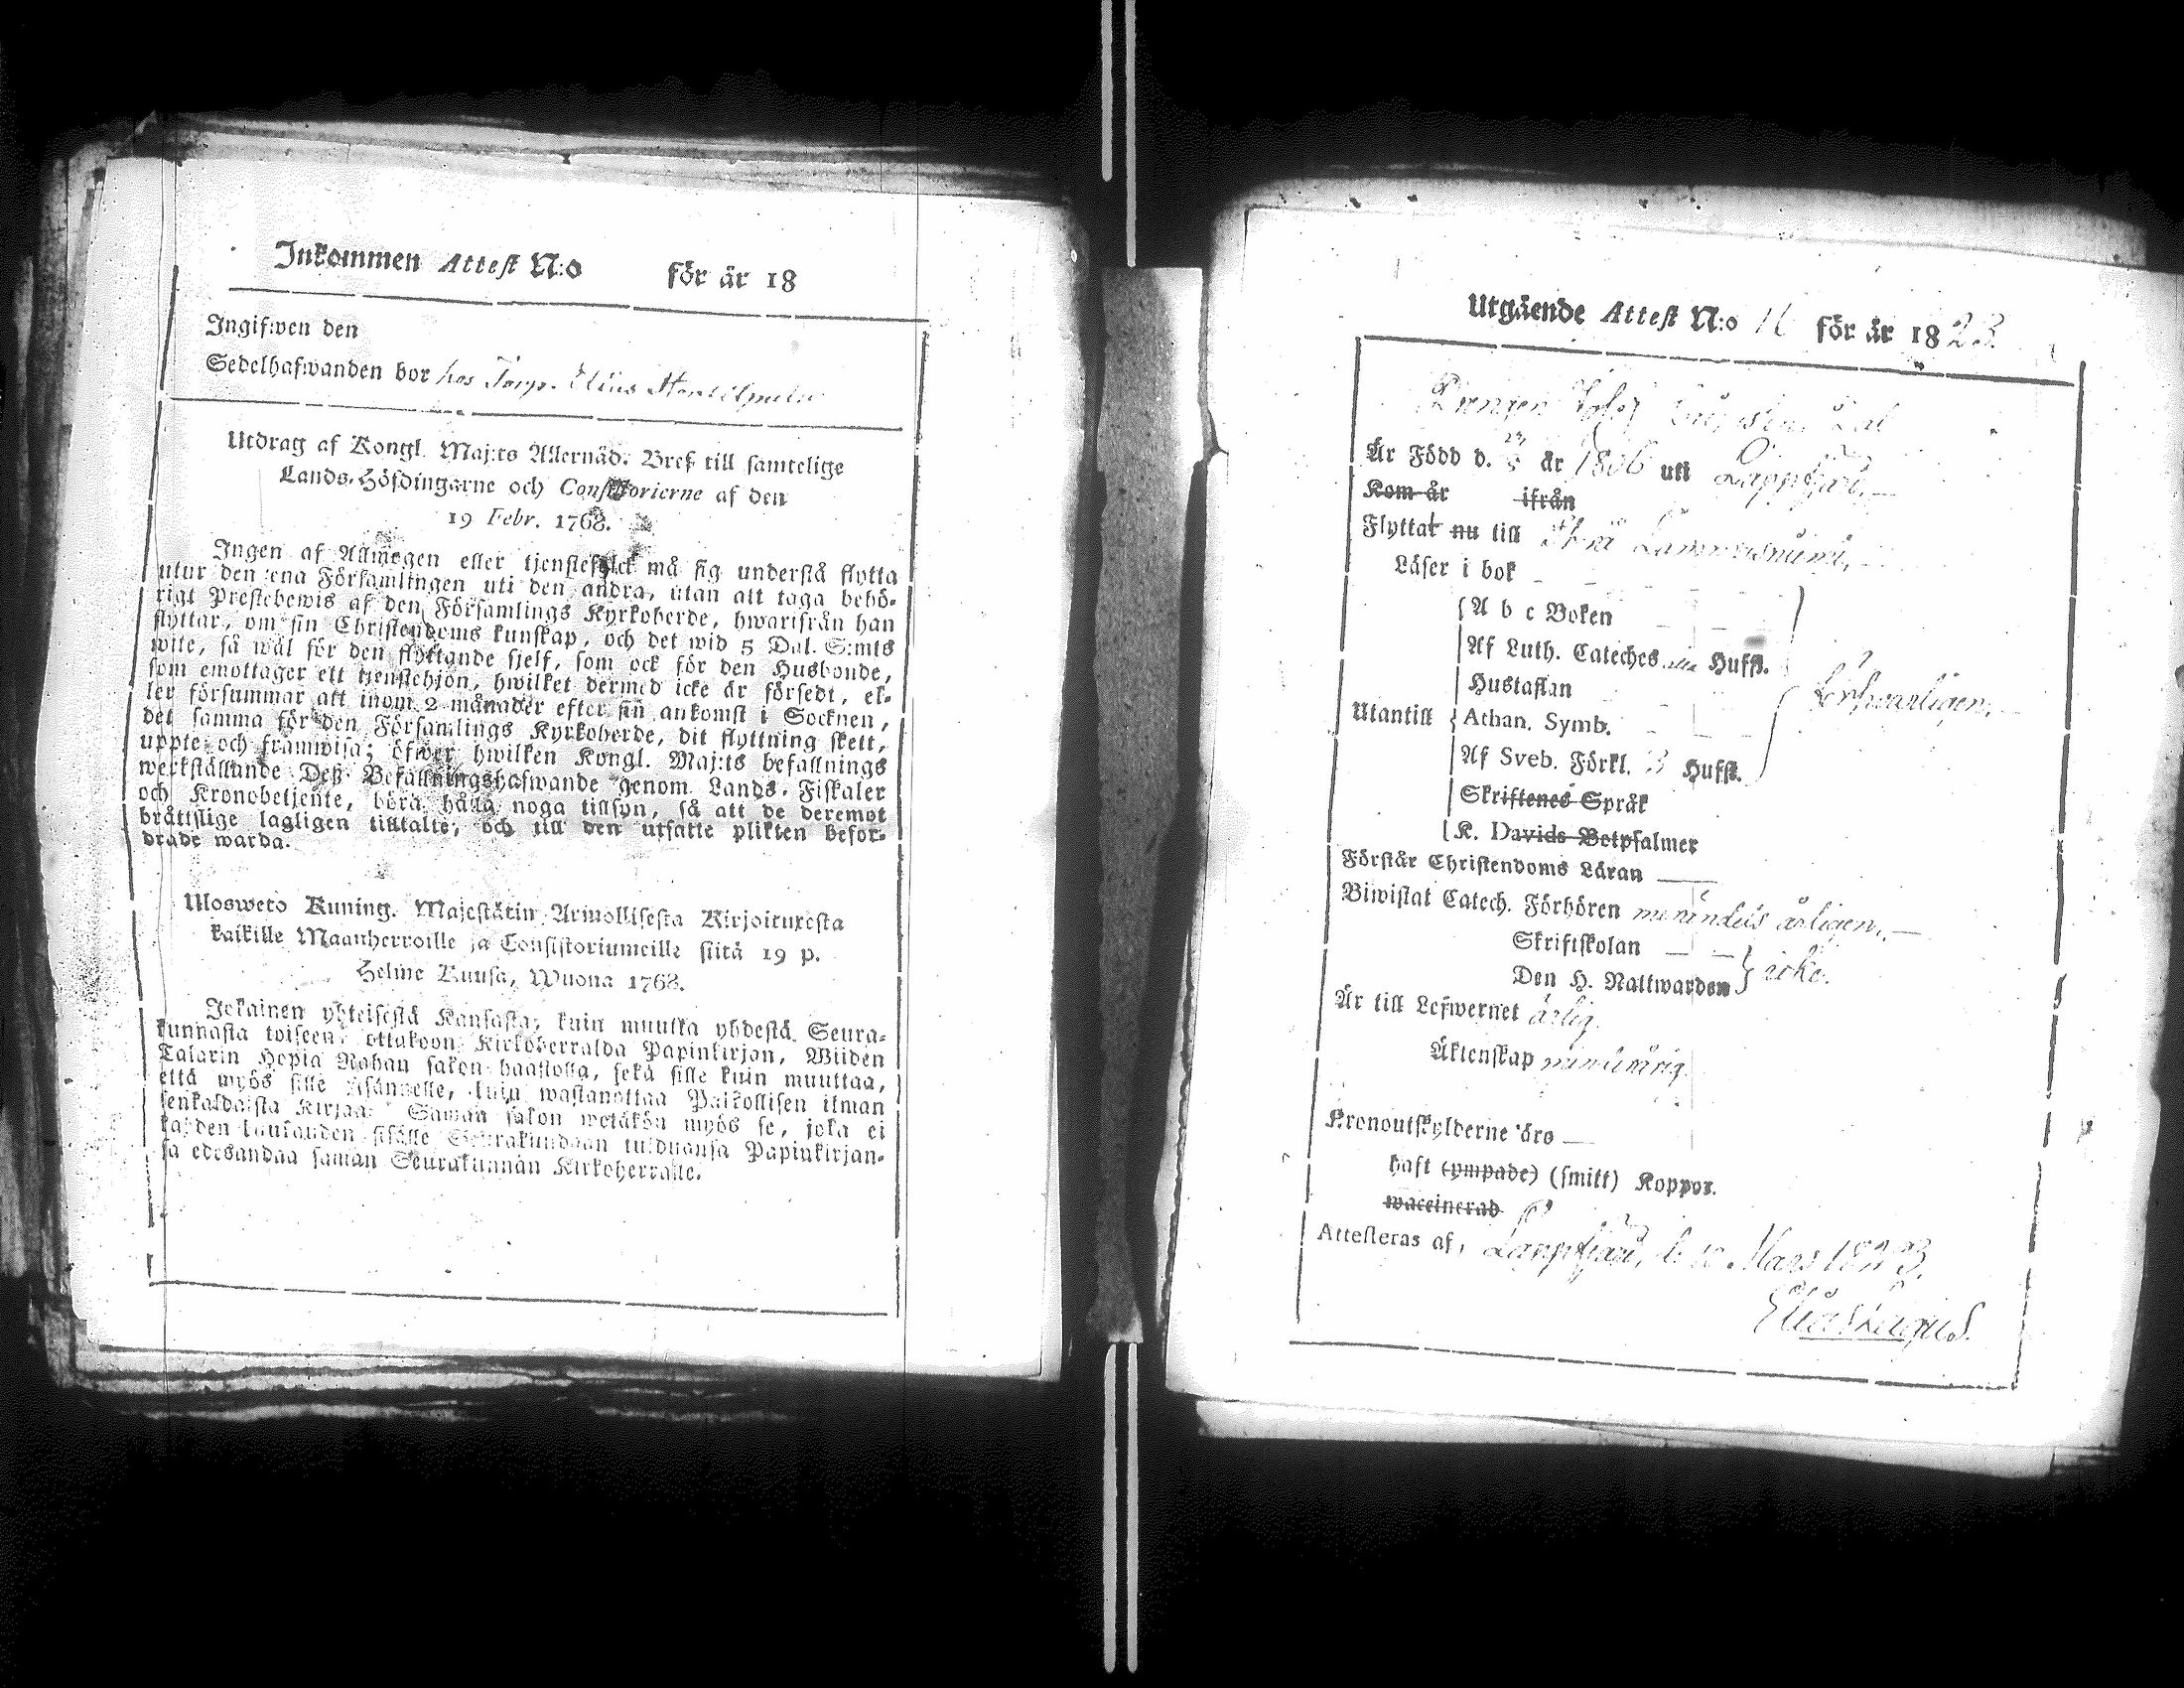 Inkommen Attest N:o för år 18
Ingifwen den
Sedelhafwanden bor hos Torp. Elias
Utdrag af Kongl. Maj:ts Allernåd. Bref till samtelige
Lands-Höfdingarne och Consistorierne af den
19 Febr. 1768.
Ingen af Allmogen eller tjenstefolck må sig understå flytta
utur den ena Församlingen uti den andra, utan att taga behö-
rigt Prestebewis af den Församlings Kyrkoherde, hwarifrån han
flyttar, om sin Christendoms kunskap, och det wid 5 Dal. S:mts
wite, så wäl för den flyttande sjelf, som ock för den Husbonde,
som emottager ett tjenstehjon, hwilket dermed icke är försedt, el-
ler försummar att inom 2 månader efter sin ankomst i Socknen,
det samma för den Församlings Kyrkoherde, dit flyttning skett,
uppte och framwisa; öfwer hwilken Kongl. Maj:ts befallnings
werkställande Deß Befallningshafwande genom Lands-Fiskaler
och Kronobetjente, böra hålla noga tillsyn, så att de deremot
bråttslige lagligen tilltalte, och till den utsatte plikten befor-
drade warda.
Ulosweto Kuning. Majestätin Armollisesta Kirjoituxesta
kaikille Maanherroille ja Consistoriumeille siitä 19 p.
Helme Kuusa, Wuona 1768.
Jokainen yhteisestä Kansasta, kuin muutta yhdestä Seura-
kunnasta toiseen, ottakoon Kirkoherralda Papinkirjan, Wiiden
Talarin Hopia Rahan sakon haastolla, sekä sille kuin muuttaa,
että myös sille Isännelle, kuin wastanottaa Paikollisen ilman
senkaldaista Kirjaa. Saman sakon wetäkön myös se, joka ei
kahden kuukauden sisälle Seurakundaan tulduansa Papinkirjan-
sa edesandaa saman Seurakunnan Kirkoherralle.
Utgående Attest N:o 16 för år 1823
Drengen
Är Född d. år 1806 uti Lappfjärd
Kom år ifrån
Flyttat nu till
Läser i bok
A b c Boken
Af Luth. Cateches alla Hufst.
Hustaflan
Utantill Athan. Symb.
Af Sveb. Förkl. 3 Hufst.
Skriftenes Språk
K. Davids Botpsalmer
Förstår Christendoms Läran
Biwistat Catech. Förhören årligen,
Skriftskolan
Den H. Nattwarden icke.
Är till Lefwernet ärlig
Äktenskap minderårig.
Kronoutskylderne äro
haft (ympade) (smitt) Koppor.
waccinerad
Attesteras af, Lappfjärd, d. 10 Mars 1823.